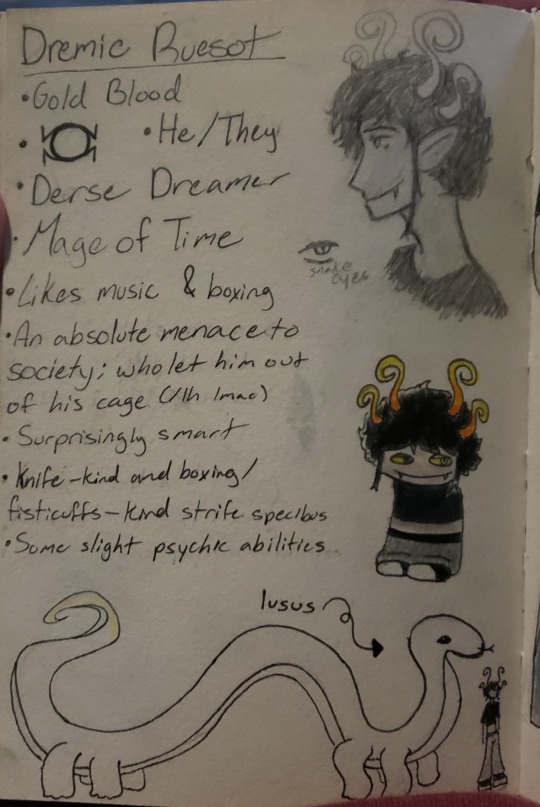 Dremic Ruesot
•Gold Blood
• •He/They
•Derse Dreamer
•Mage of Time
•Likes music & boxing
•An absolute menace to
society; who let him out
of his cage (/lh /mac)
•Surprisingly smart
•Knife-kind and boxing/
fisticuffs-kind strife specibus
•Some slight psychic abilities
snake
eyes
lusus